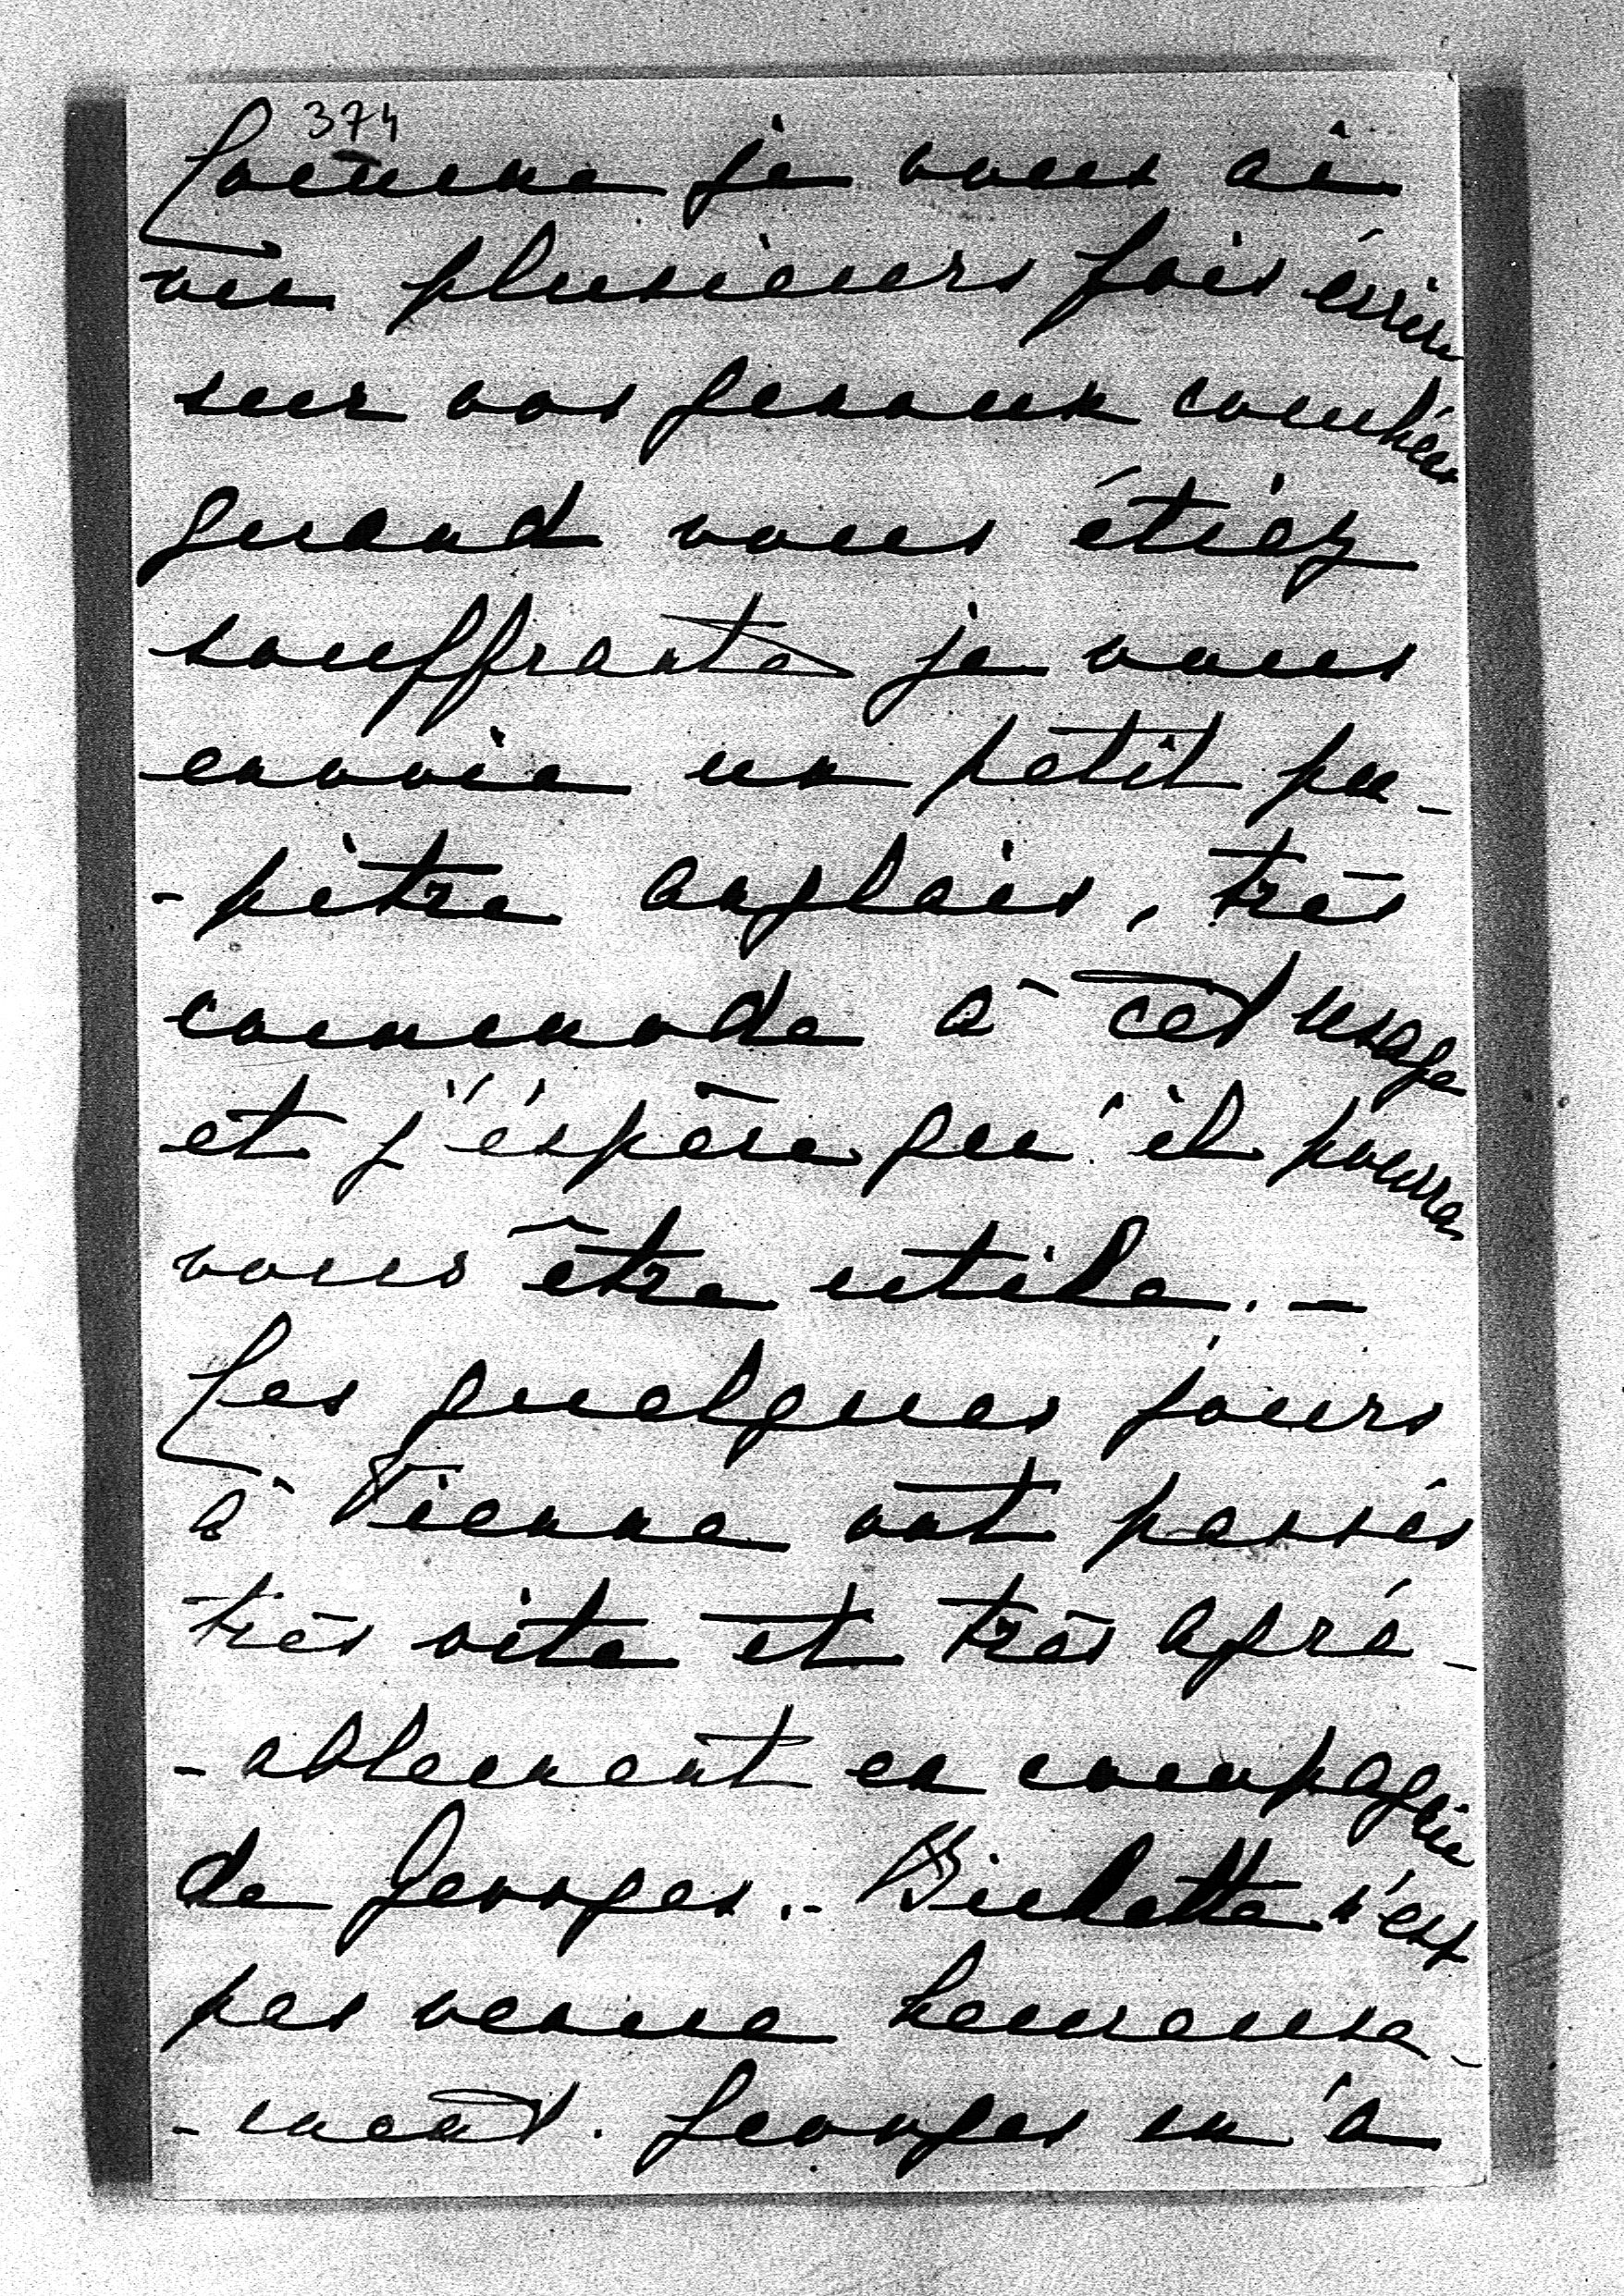 374
Comme je vous ai
vu plusieurs fois écrire
sur vos genoux couchée
quand vous étiez
souffrante je vous
envoie un petit pu-
-pitre anglais, très
commode à cet usage
et j'éspère qu'il pourra
vous être utile. -
Les quelques jours
à Vienne ont passés
très vite et très agré-
-ablement en compagnie
de Georges. - Bichette n'est
pas venue heureuse-
-ment. Georges m'a